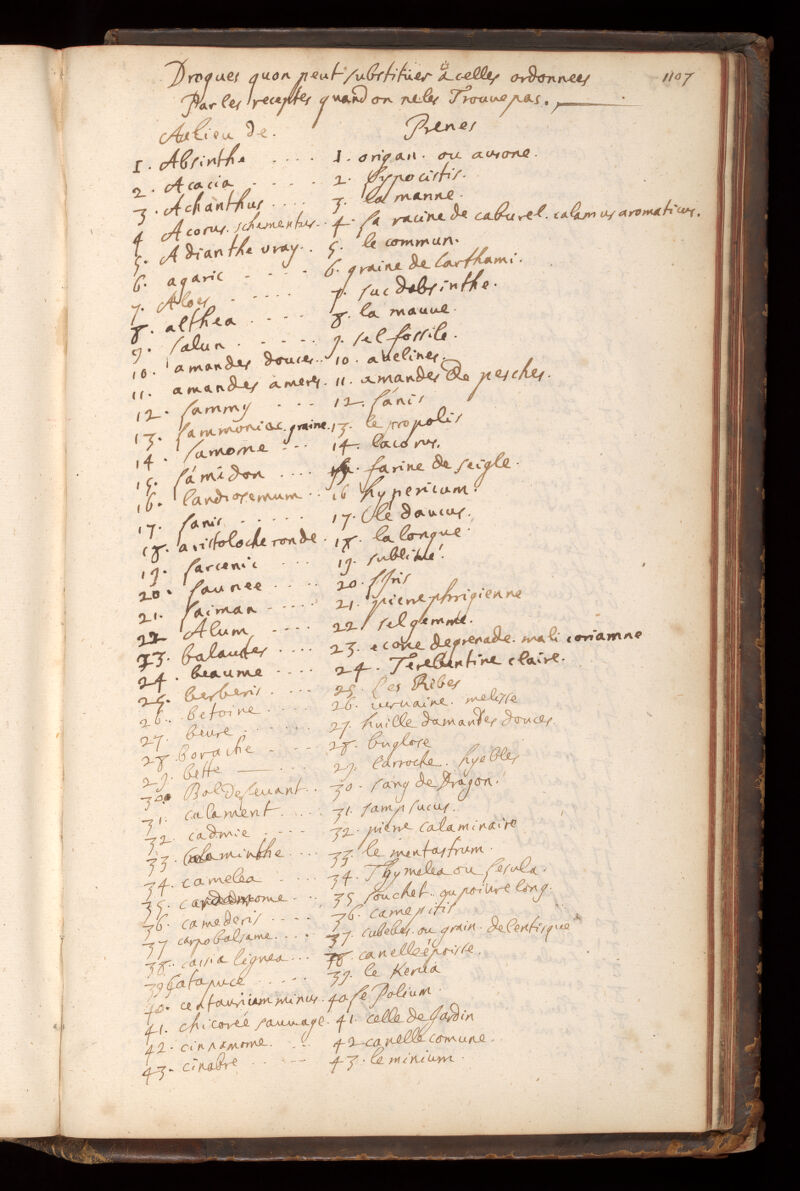 Drogues quon peut substituer a celles ordonnees 1107
Par les receptes quand on ne les Trouve pas.
Au lieu de. Prenes
1. Absinthe .... 1. origan. ou aurone.
2. Acacia .... 2. hypocistis.
3. Achanthus .... 3. la manne.
4 Acorus. .. 4. sa racine de caburel. calamus aromaticus.
5. Adianthe vray .. 5. le commun.
6. agaric .... 6. graine de Carthami.
7. Aloes .... 7. suc dabsinthe.
8. althea .... 8. la mauve.
9. lalun .... 9. sel fossile.
10. amandes douces .. 10. avelines.
11. amandes ameres. 11. amandes de pesches.
12. lammy ... 12. lanis
13. lammoniac. graine. 13. le propolis
14. lamome ... 14. lacorus.
15. lamidon .... 15. farine de seigle.
16. landrosemum .. 16 hypericum.
17. lanis .... 17. le daucus.
18. aristoloche ronde. 18. la longue
19. larcenic ... 19. sublimé.
20. launee .... 20. lIris
21. laiman .... 21. pierre phrigienne
22 Alum .... 22. sel gemme.
23. balaustes .... 23. ecorce de grenade. mali
24. beaume .... 24. Terebentine claire.
25. berberis .... 25. les Ribes
26. betoine .... 26. vervaine. melisse
27. beure .... 27. huille damandes douces.
28 borache .... 28. buglose
29. bette ... 29. larroche. hyebles
30. Bol de levant .. 30. sang de Dragon.
31. calament .... 31. sampsucus.
32. cadmie .... 32. pierre calaminaire
33. calaminthe .... 33. le mentastrum.
34. camelea .... 34. Thymelea ou lesula.
35. cardamome ... 35 souchet. ou poivre long.
36. camederis .... 36. camepitis
37 carpobalsame .... 37. cubebes. ou grain. de lentisque
38. cassia lignea ... 38 canelle
39 Catapuce .... 39. le Kerua
40. centaurium minus. 40. le Polium.
41. chicorée sauvage. 41. celle de Jardin
42. cinnamome. ... 42 canelle comune.
43. cinabre .... 43. le minium.